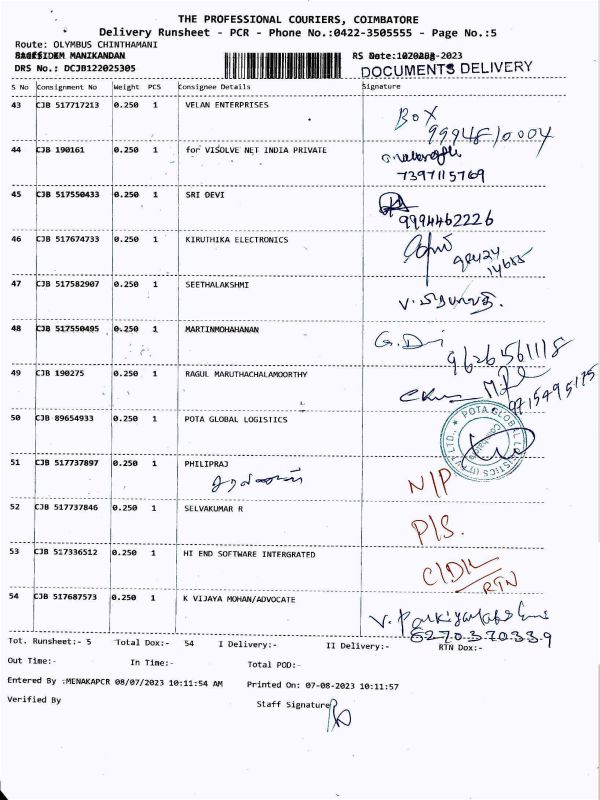 THE PROFESSIONAL COURIERS, COIMBATORE
Delivery Runsheet - PCR - Phone No.:0422-3505555 - Page No.:5
Route: OLYMBUS CHINTHAMANI
MANIKANDAN
DRS No.: DCJB122025305
RS
DOCUMENTS DELIVERY
S No Consignment No Weight PCS Consignee Details Signature
43 CJB 517717213 0.250 1 VELAN ENTERPRISES BOX
44 CJB 190161 0.250 1 for VISOLVE NET INDIA PRIVATE
7397115769
45 CJB 517550433 0.250 1 SRI DEVI
9994462226
46 CJB 517674733 0.250 1 KIRUTHIKA ELECTRONICS
98424
14655
47 CJB 517582907 0.250 1 SEETHALAKSHMI
48 CJB 517550495 0.250 1 MARTINMOHAHANAN G.Di
9626561118
49 CJB 190275 0.250 1 RAGUL MARUTHACHALAMOORTHY
9715495175
50 CJB 89654933 0.250 1 POTA GLOBAL LOGISTICS
POTA GLOBAL LOGISTICS (I) PVT LTD.
51 CJB 517737897 0.250 1 PHILIPRAJ
N/P
52 CJB 517737846 0.250 1 SELVAKUMAR R
P/S.
53 CJB 517336512 0.250 1 HI END SOFTWARE INTERGRATED
C/DK
RTN
54 CJB 517687573 0.250 1 K VIJAYA MOHAN/ADVOCATE
6270370339
Tot. Runsheet:- 5 Total Dox:- 54 I Delivery:- II Delivery:- RTN Dox:-
Out Time:- In Time:- Total POD:-
Entered By :MENAKAPCR 08/07/2023 10:11:54 AM Printed On: 07-08-2023 10:11:57
Verified By Staff Signature